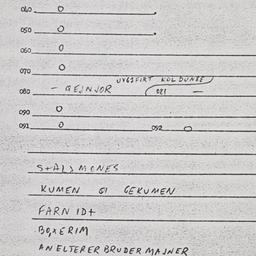 040 O
050 O
060 O
070 O
UVGIFIRT KOLDUNBE
080 - GEJNJOR 021 -
090 O
091 O 092 O
S+ALJ MONES
KUMEN GI GEKUMEN
FARN ID+
BOXERIM
AN ELTERER BRUDER MAJNER